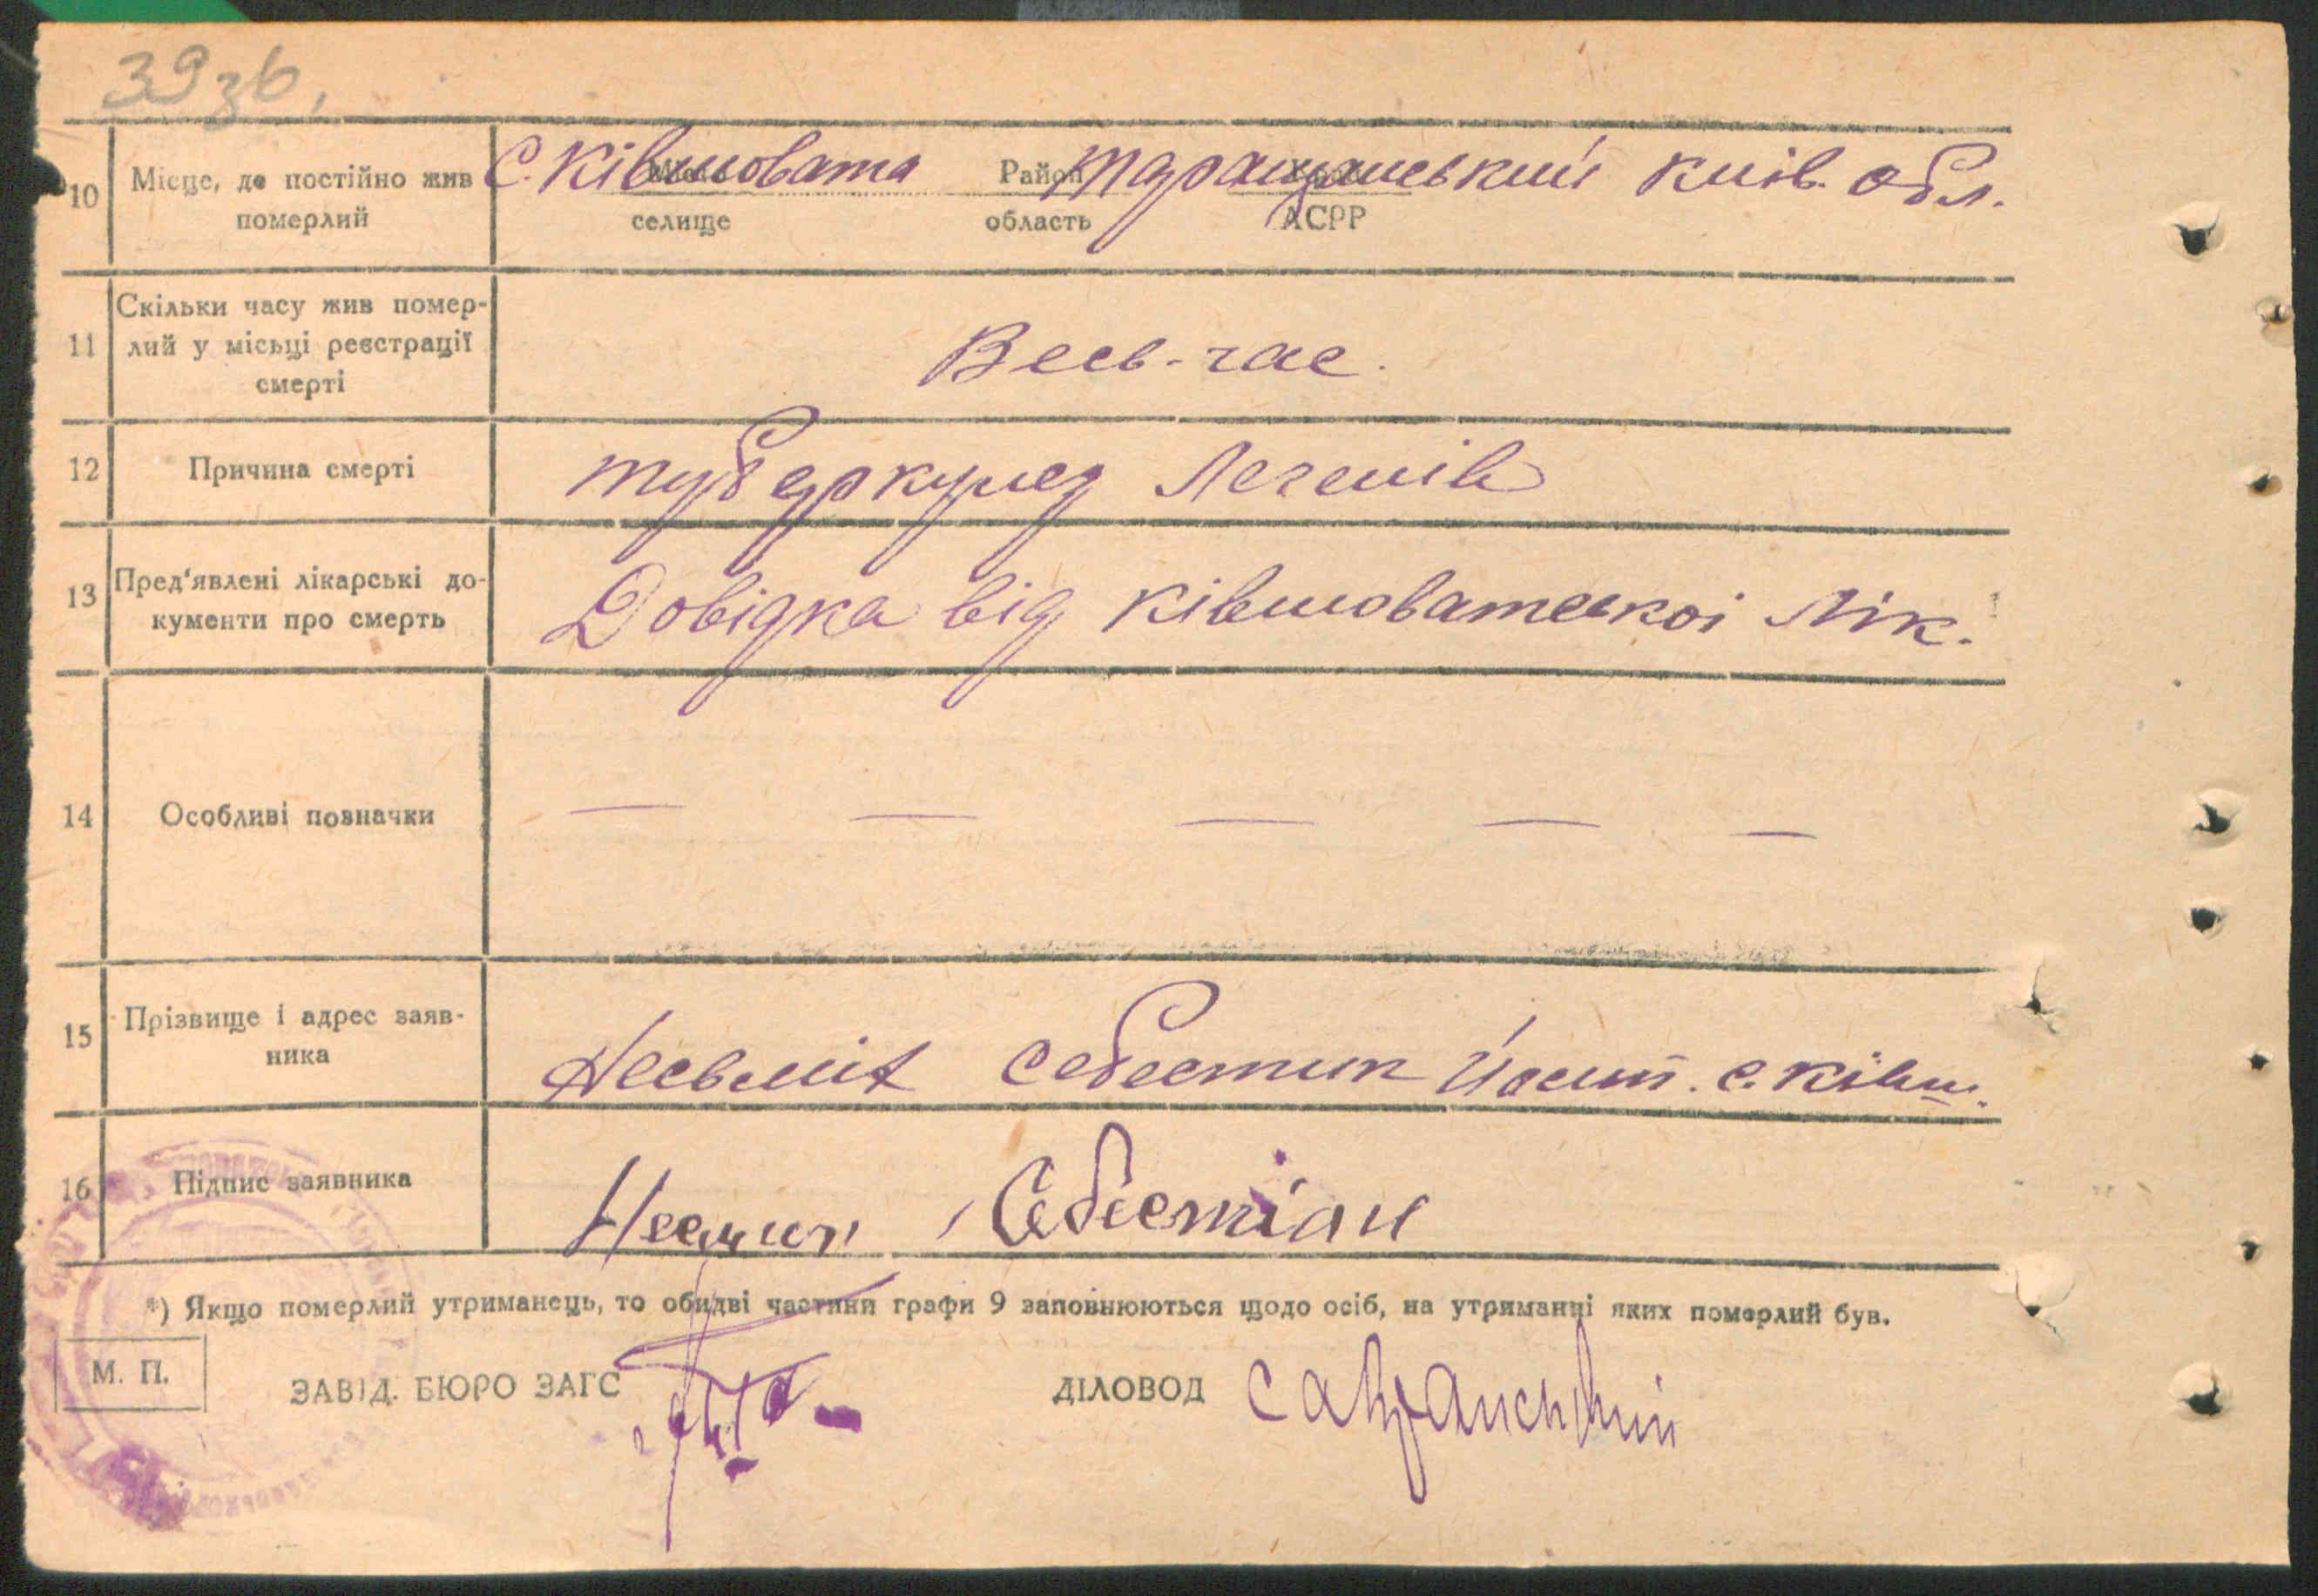 39 зв.
10 Місце, де постійно жив померлий С. Ківшовата Місто селище Район область Таращанський Київ. обл. АСРР
11 Скільки часу жив померлий у місьці реєстрації смерті Весь-час.
12 Причина смерті туберкульоз Легенів
13 Пред'явлені лікарські документи про смерть Довідка від Ківшоватської Лік.
14 Особливі позначки — — — — —
15 Прізвище і адрес заявника Себестин с. Ківш.
16 Підпис заявника Себестіан
*) Якщо померлий утриманець, то обидві частини графи 9 заповнюються щодо осіб, на утриманні яких померлий був.
М. П. ЗАВІД. БЮРО ЗАГС ДІЛОВОД